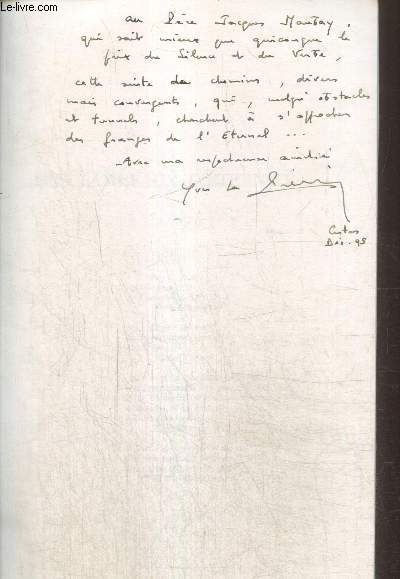 Le-livre.com
au Père Jacques
qui sait mieux que quiconque le
prix du Silence et du Verbe,
cette suite de chemins, divers
mais convergents, qui, malgré obstacles
et tunnels, cherchent à s'approcher
des franges de l'Eternel ...
Avec ma respectueuse amitié
Yves Le
Déc. 95